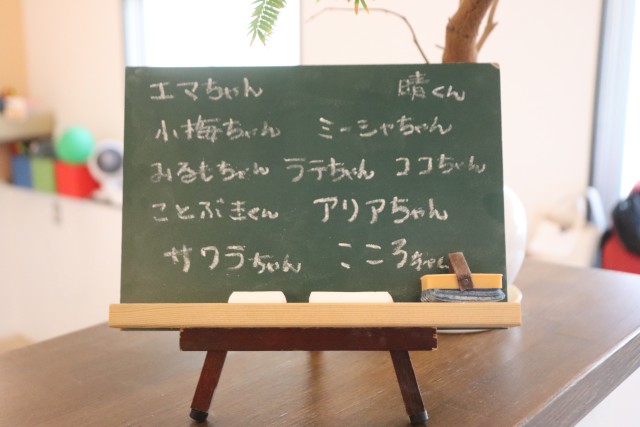 エマちゃん 晴くん
小梅ちゃん ミーシャちゃん
みるもちゃん ラテちゃん ココちゃん
ことぶきくん アリアちゃん
サワラちゃん こころちゃん